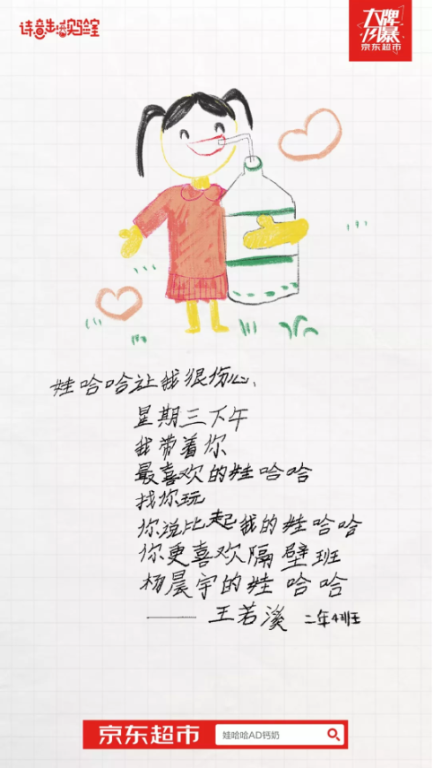 大牌
风暴
京东超市
娃哈哈让我很伤心、
星期三下午
我带着你
最喜欢的娃哈哈
找你玩
你说比起我的娃哈哈
你更喜欢隔壁班
杨晨宇的娃哈哈
——王若溪 二年4班
京东超市 娃哈哈AD钙奶